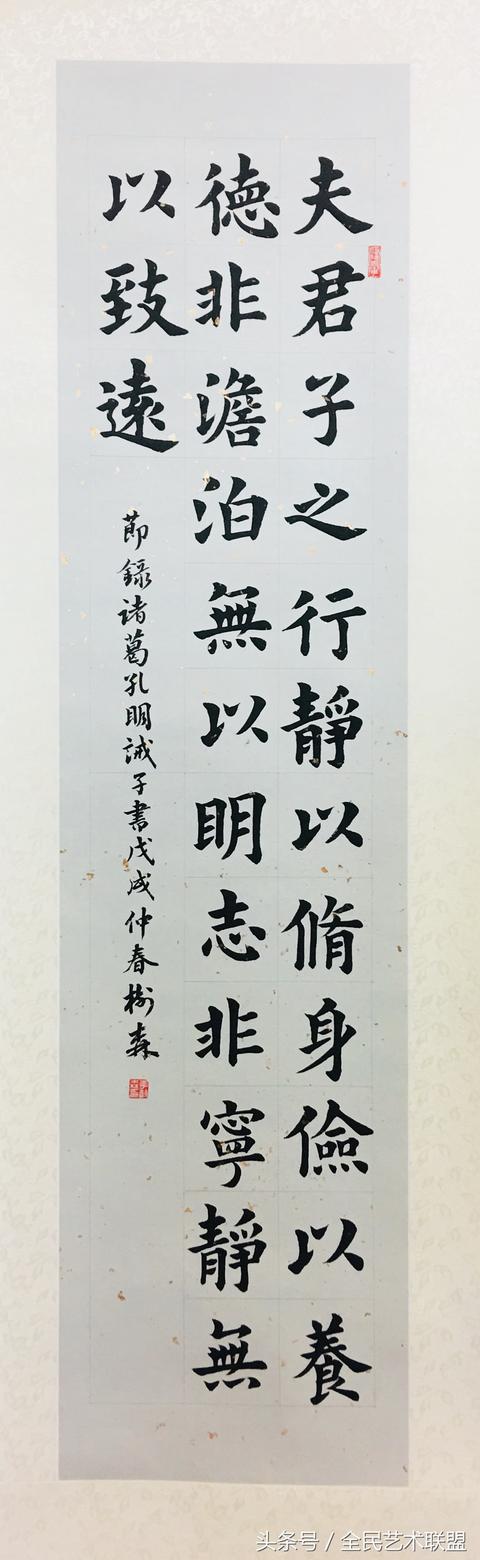 夫君子之行靜以脩身儉以養
德非澹泊無以明志非寧靜無
以致遠
節錄诸葛孔明誡子書戊戌仲春樹森
头条号 / 全民艺术联盟